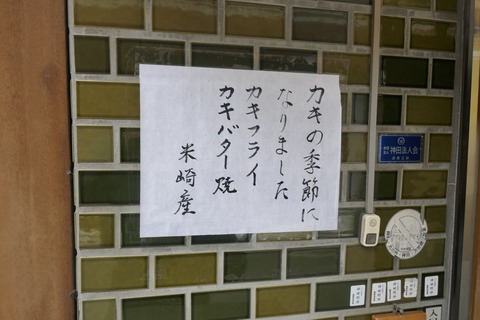 カキの季節に
なりました
カキフライ
カキバター焼
米崎産
神田法人会